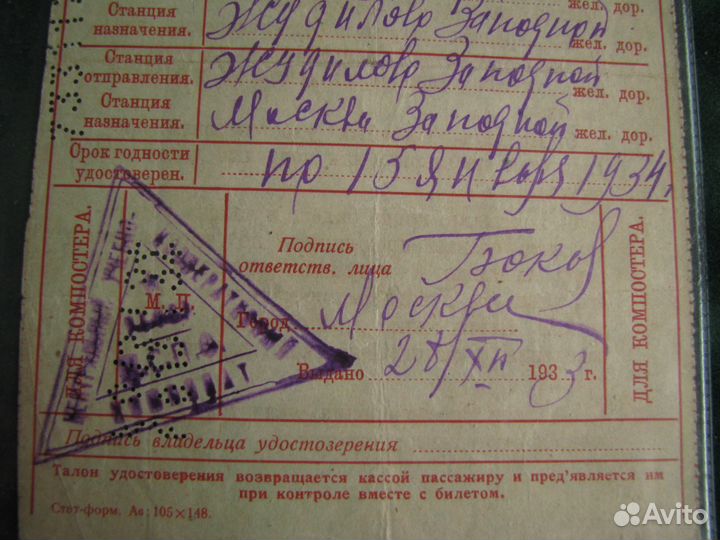 Станция назначения. Жудилово Западной жел. дор.
Станция отправления. Жудилово Западной жел. дор.
Станция назначения. Москва Западной жел. дор.
Срок годности удостоверен. по 15 января 1934 г.
ДЛЯ КОМПОСТЕРА.
М. П.
Подпись ответств. лица
Город Москва
Выдано 28/XII 1933 г.
ДЛЯ КОМПОСТЕРА.
Подпись владельца удостозерения
Талон удостоверения возвращается кассой пассажиру и пред'является им
при контроле вместе с билетом.
Стет-форм. А6: 105 × 148.
Avito